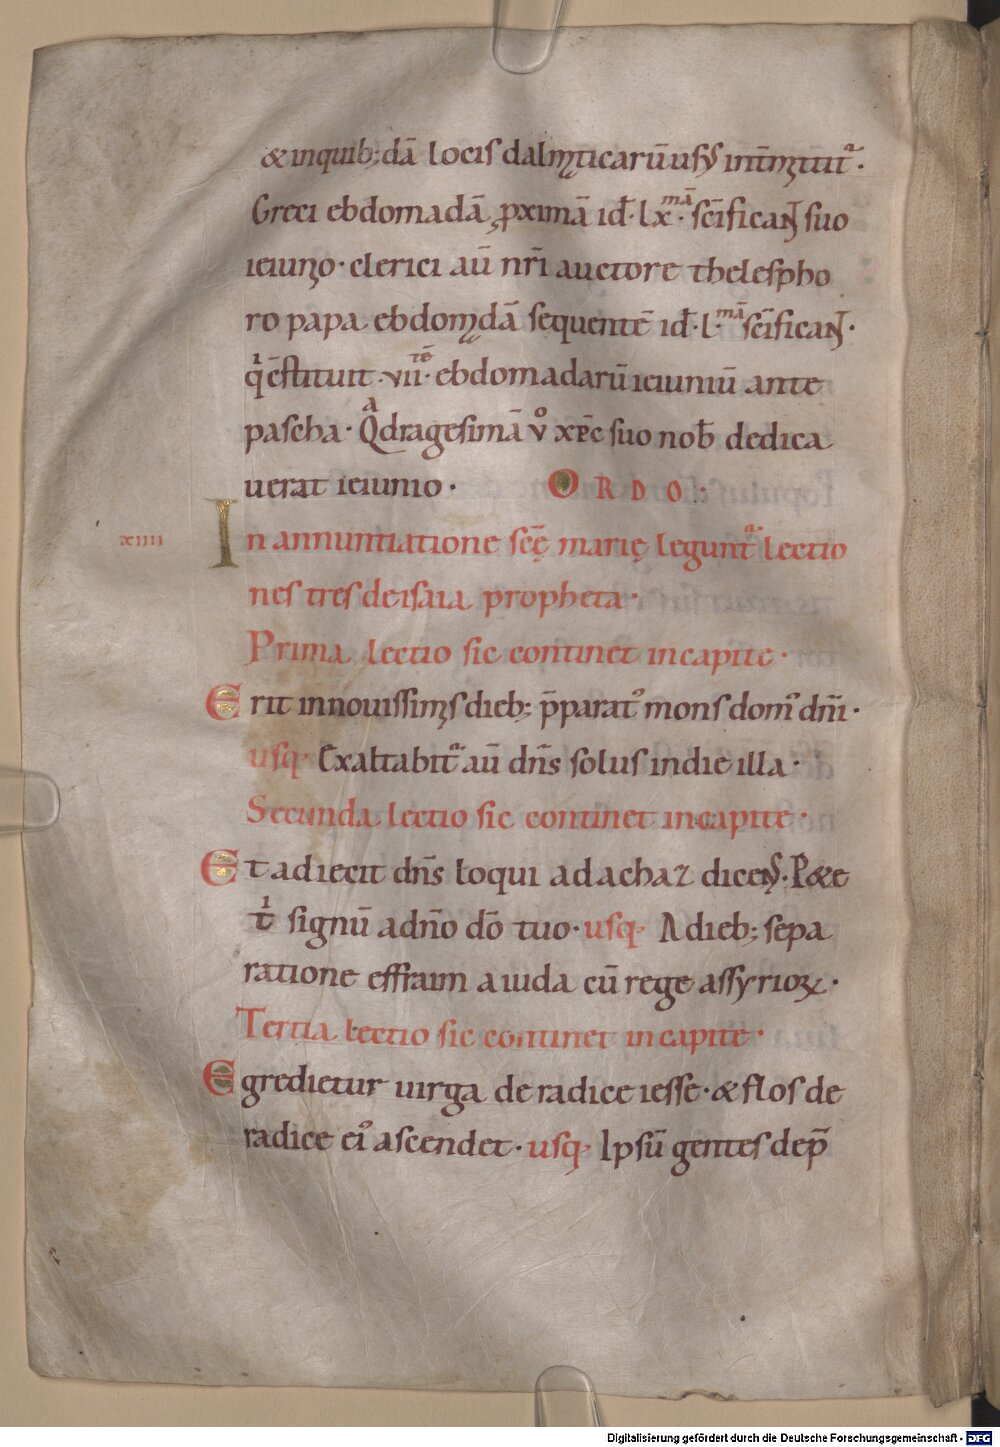 & inquib; dā locis dalmaticarū usꝰ int̄mittit᷑.
Greci ebdomadā ꝓximā id̄·lx·mā sc̄ificant suo
ieiunio· clerici aū nr̄i auctore thelespho
ro papa ebdomadā sequentē id̄·l·mā sc̄ificant·
qͥ c̄stituit ·vii·tē ebdomadarū ieiuniū ante
pascha· Qᵃdragesimā v̊ xp̄c suo nob̄ dedica
uerat ieiunio· ORDO·
xiiii
In annuntiatione sc̄ę marię legunt᷑ lectio
nes tres de isaia propheta·
Prima lectio sic continet in capite·
Erit in nouissimis dieb; p̄parat᷒ mons dom᷒ dn̄i·
usq· Exaltabit᷑ aū dn̄s solus in die illa·
Secunda lectio sic continet in capite·
Et adiecit dn̄s loqui ad achaz dicens· P&e
tͥ signū a dn̄o dō tuo· usq· A dieb; sepa
ratione effraim a iuda cū rege assyrioꝝ·
Tertia lectio sic continet in capite·
Egredietur uirga de radice iesse· & flos de
radice ei᷒ ascendet· usq· Ipsū gentes dep̄
Digitalisierung gefördert durch die Deutsche Forschungsgemeinschaft - DFG